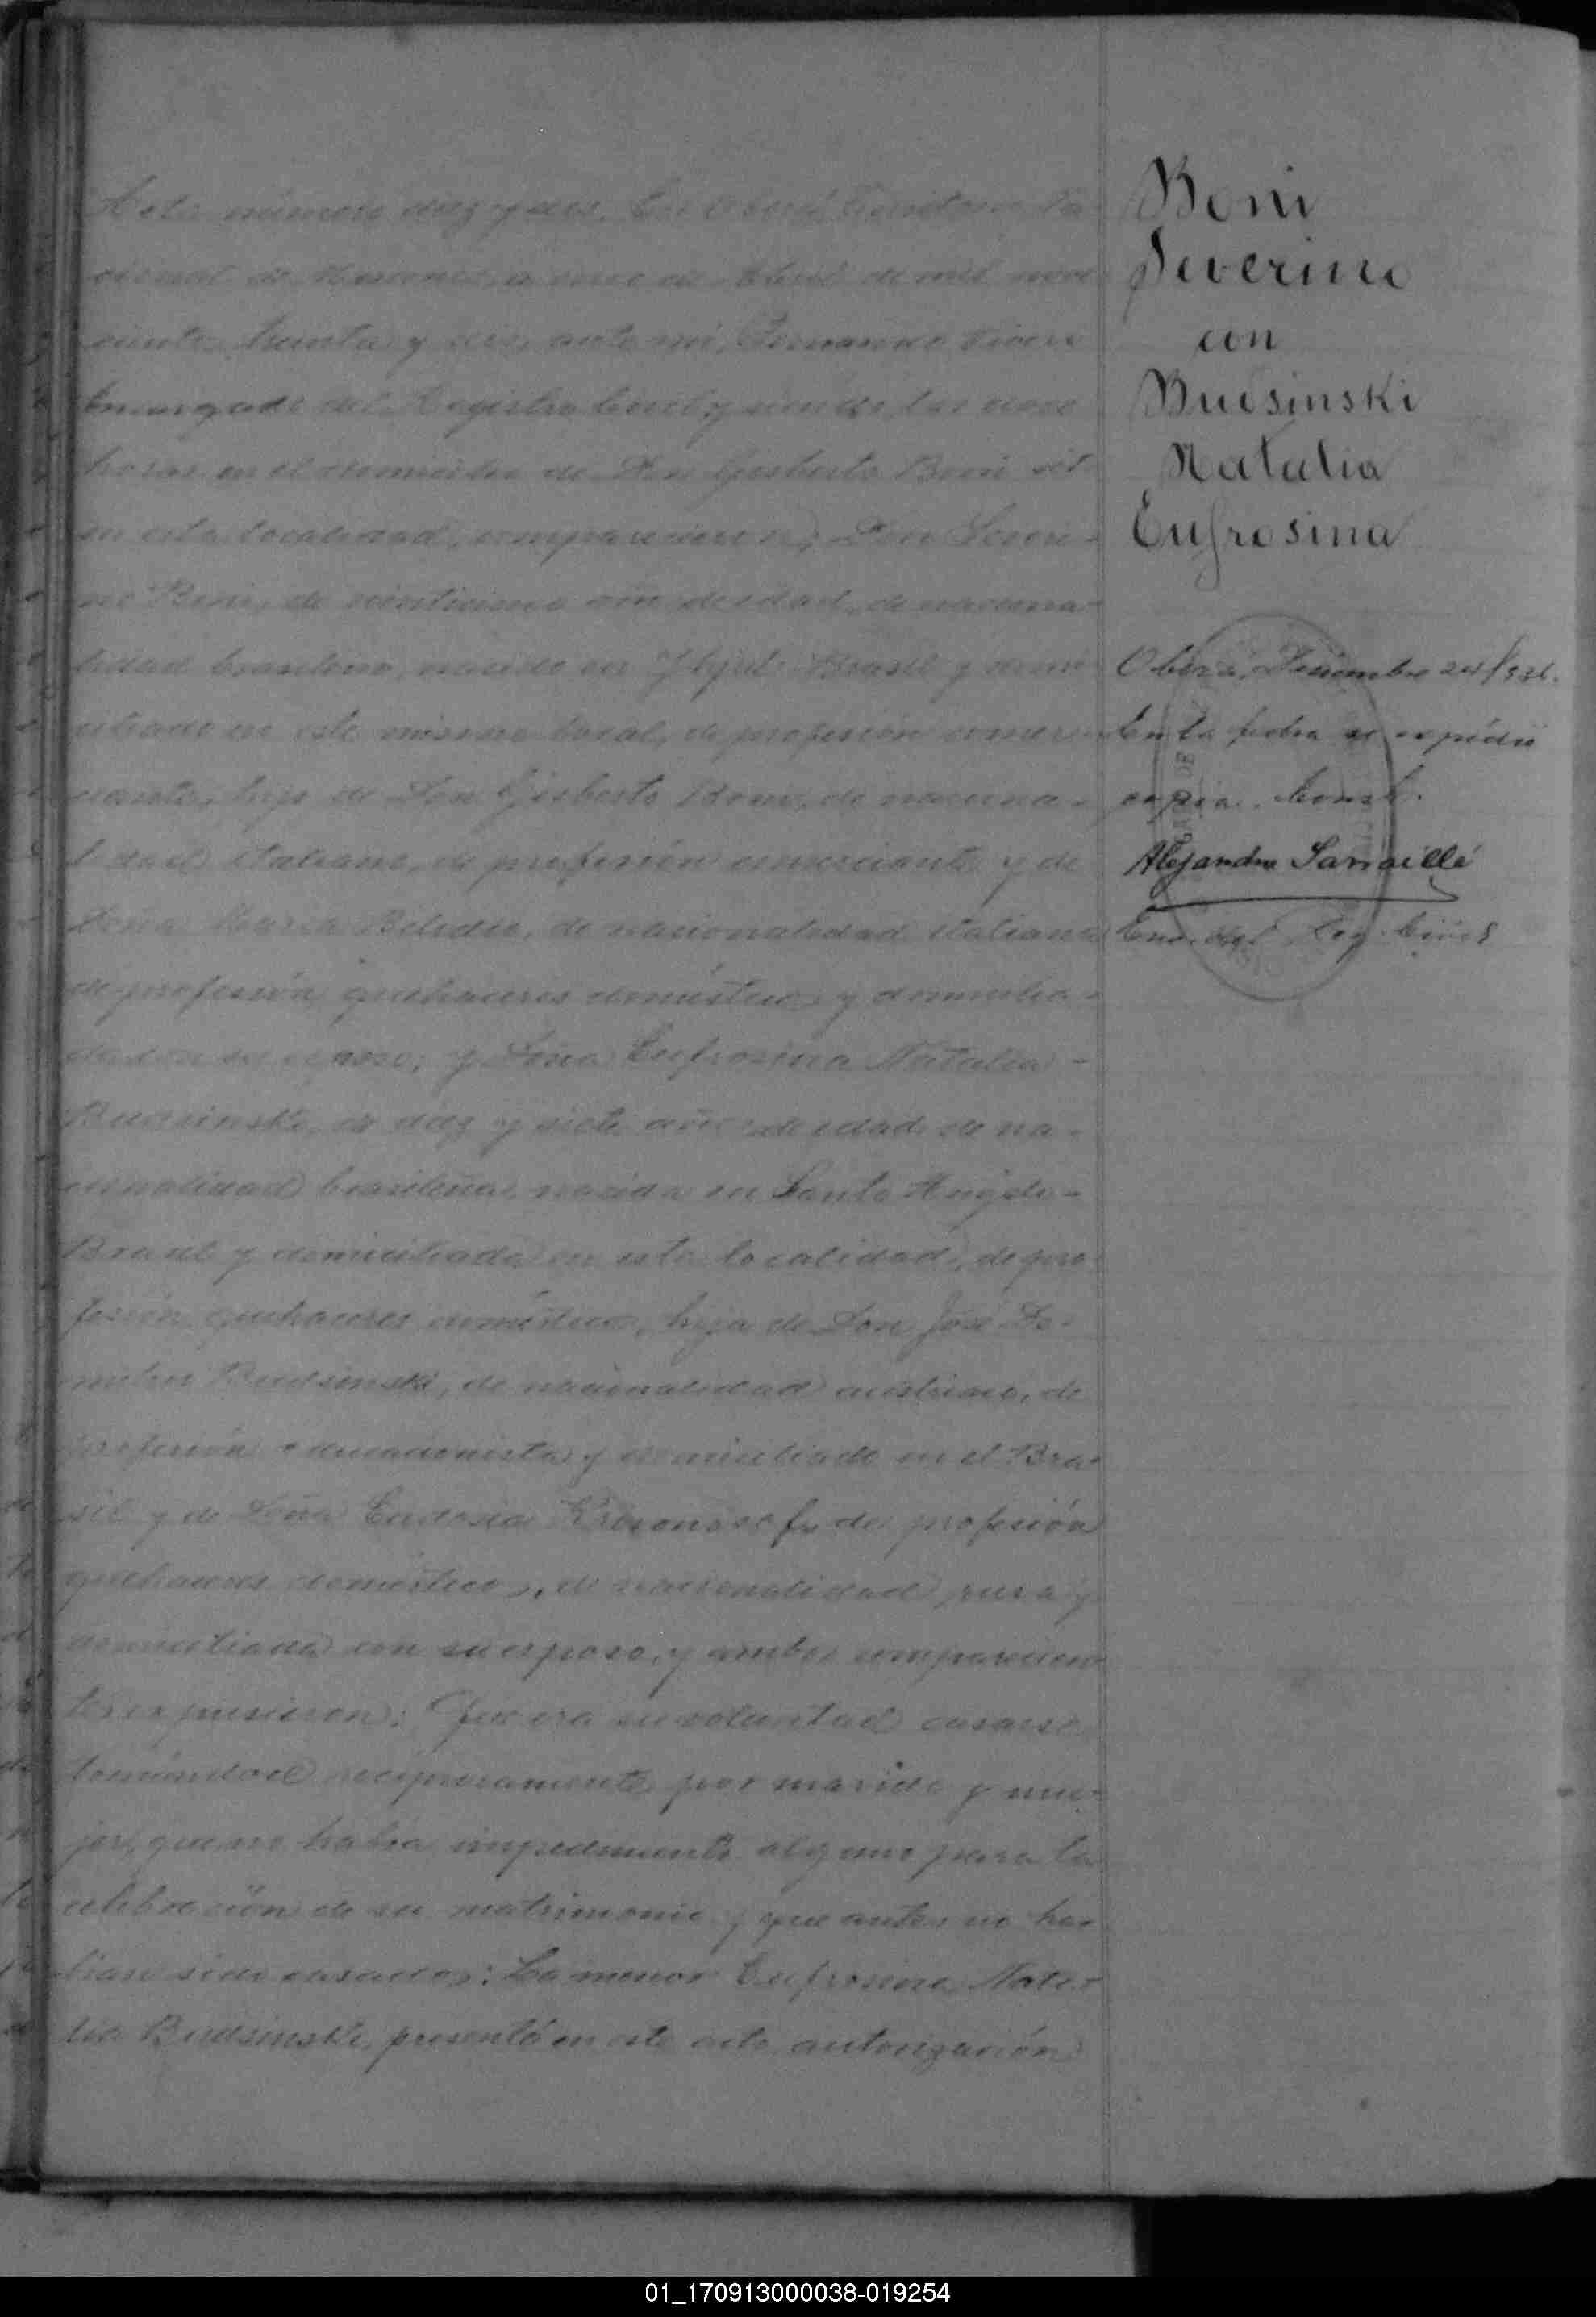 Acta número diez y seis. En Oberá Territorio Na-
cional de Misiones, a once de Abril de mil nove
cientos treinta y seis, ante mí, Fernando
Encargado del Registro Civil y siendo las once
horas en el domicilio de Don Gisberto Boni sito
en esta localidad, comparecieron; Don Severi-
no Boni, de veinticinco años de edad, de naciona-
lidad brasileña, nacido en Yjuhí-Brasil y domi
ciliado en este mismo local, de profesión comer-
ciante, hijo de Don Gisberto Boni, de naciona-
lidad italiano, de profesión comerciante y de
doña María, de nacionalidad italiana
de profesión quehaceres domésticos y domicilia-
da con su esposo; y Doña Eufrosina Natalia -
Budsinski, de diez y siete años de edad, de na-
cionalidad brasileña, nacida en Santo Angelo-
Brasil y domiciliada en esta localidad, de pro
fesión quehaceres domésticos, hija de Don José
Budsinski, de nacionalidad austriaco, de
profesión educacionista y domiciliado en el Bra-
sil y de Doña Eudosia, de profesión
quehaceres domésticos, de nacionalidad rusa y
domiciliada con su esposo, y ambos comparecien-
tes expusieron: Que era su voluntad casarse
tomándose recíprocamente por marido y mu-
jer, que no había impedimento alguno para la
celebración de su matrimonio y que antes no ha-
bían sido casados: La menor Eufrosina Nata-
lia Budsinski, presentó en este acto autorización
Boni
Severino
con
Budsinski
Natalia
Eufrosina
Oberá, 24/936.
En la fecha se expidió
copia. Const.
Alejandro Sarraillé
Enc. del Reg. Civil
01_170913000038-019254